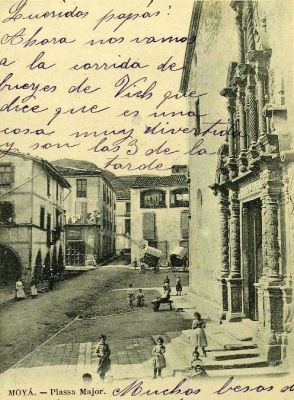 Queridos papás:
Ahora nos vamos
a la corrida de
bueyes de Vich que
dice que es una
cosa muy divertida
y son las 3 de la
tarde
MOYÁ. — Plassa Major.
Muchos besos d